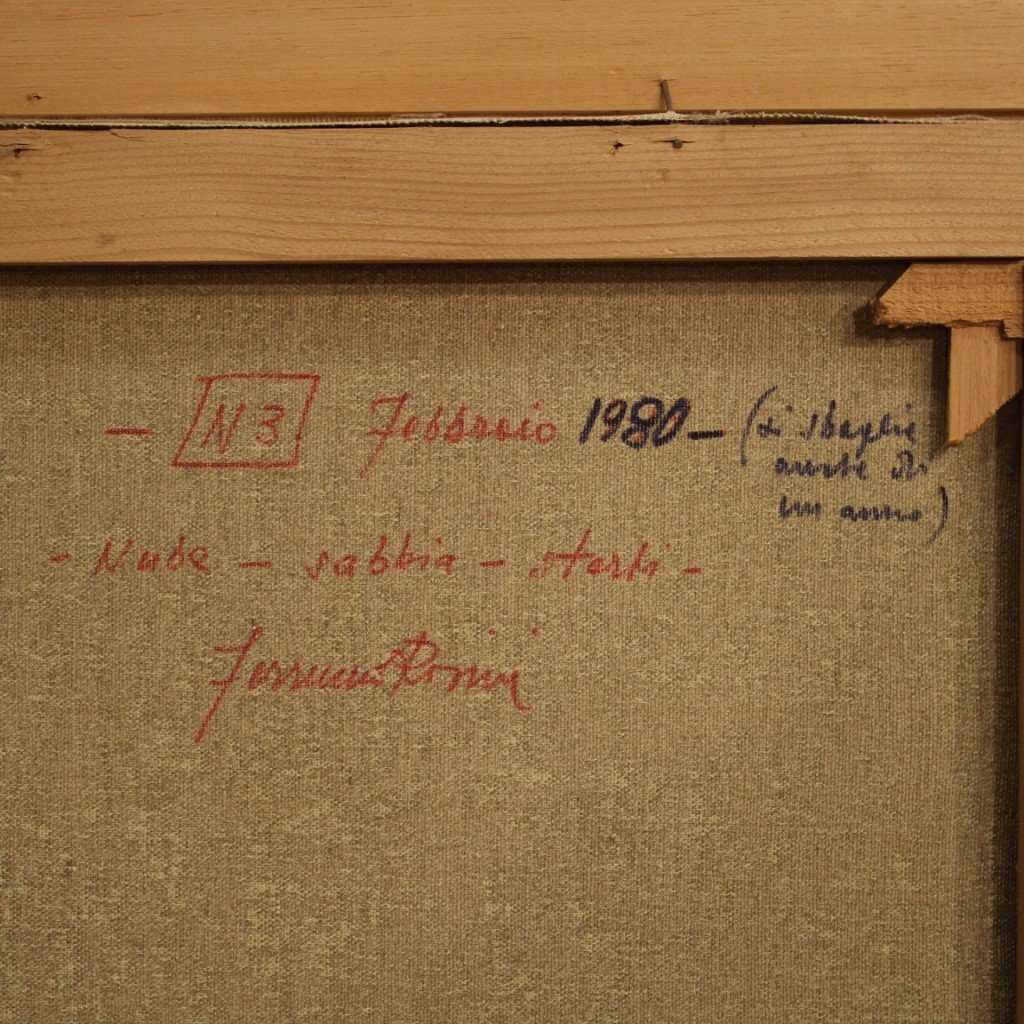 — N 3. Febbraio 1980 — (Si sbaglia
anche di
un anno)
- Nube - sabbia - sterpi -
Ferruccio Rosini